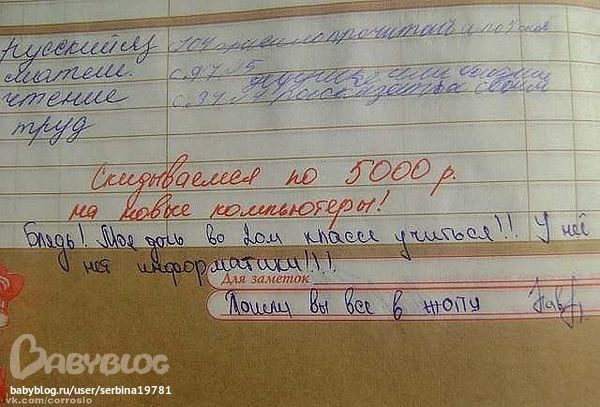 русский яз 104 правило прочитать и
матем. с.97 №5
чтение с.34 №4 рассказ
труд
Скидываемся по 5000 р.
на новые компьютеры!
Блядь! Моя дочь во 2ом классе учиться!!! У неё
нет информатики!!!!
Для заметок
Пошли вы все в жопу
BABYBLOG
babyblog.ru/user/serbina19781
vk.com/corrosio